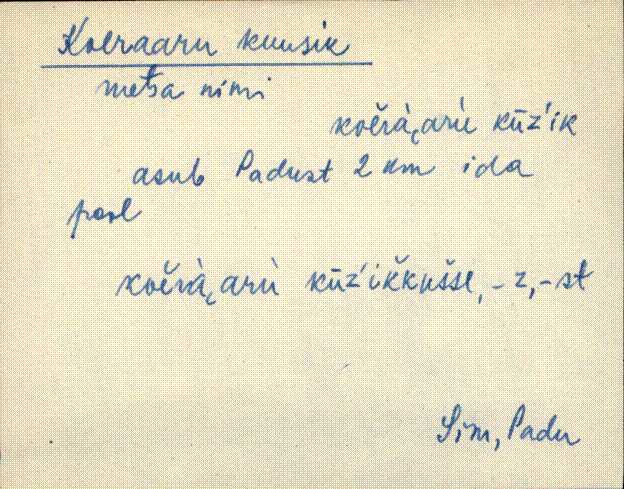 Koeraaru kuusik
metsa nimi
koĕrà͔arù kūz'ik
asub Padust 2 km ida
pool
koĕrà͔arù kūz'iškušse, -z, -st
Sim, Padu